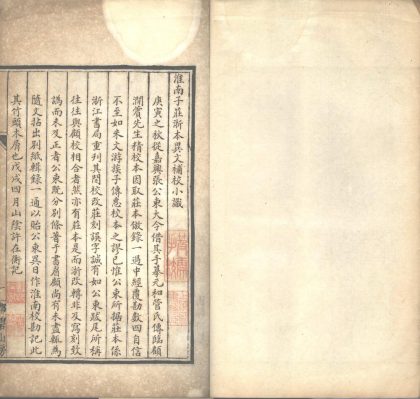 淮南子莊浙本異文補校小識
庚寅之秋從嘉興張公東大令借其手摹元和管氏傳臨顧
澗薲先生精校本因取莊本俶錄一過中經覆勘數四自信
不至如朱文游㨂子傳惠校本之謬已惟公東所據莊本係
浙江書局重刊其間校改莊刻誤字誠有如公東跋尾所稱
往往與顧校相合者然亦有莊本是而浙改轉非及寫刻致
譌而未及正者公東既分別條著于書眉顧尚有未盡輒為
隨文拈出別紙輯錄一通以貽公東異日作淮南校勘記此
其竹頭木屑也戊戌四月山陰許在衡記